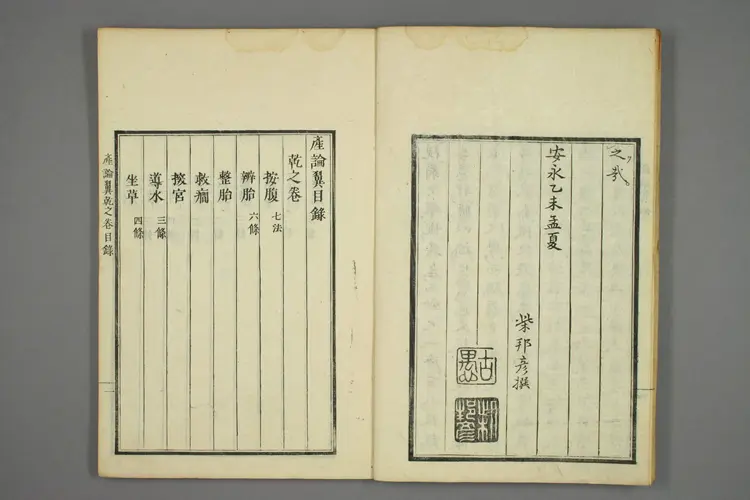 之哉
安永乙未孟夏
柴邦彦撰
古愚
柴邦彦
產論翼目錄
乾之卷
按腹 七法
辨胎 六條
整胎
救癎
按宮
導水 三條
坐草 四條
產論翼乾之卷目錄
一